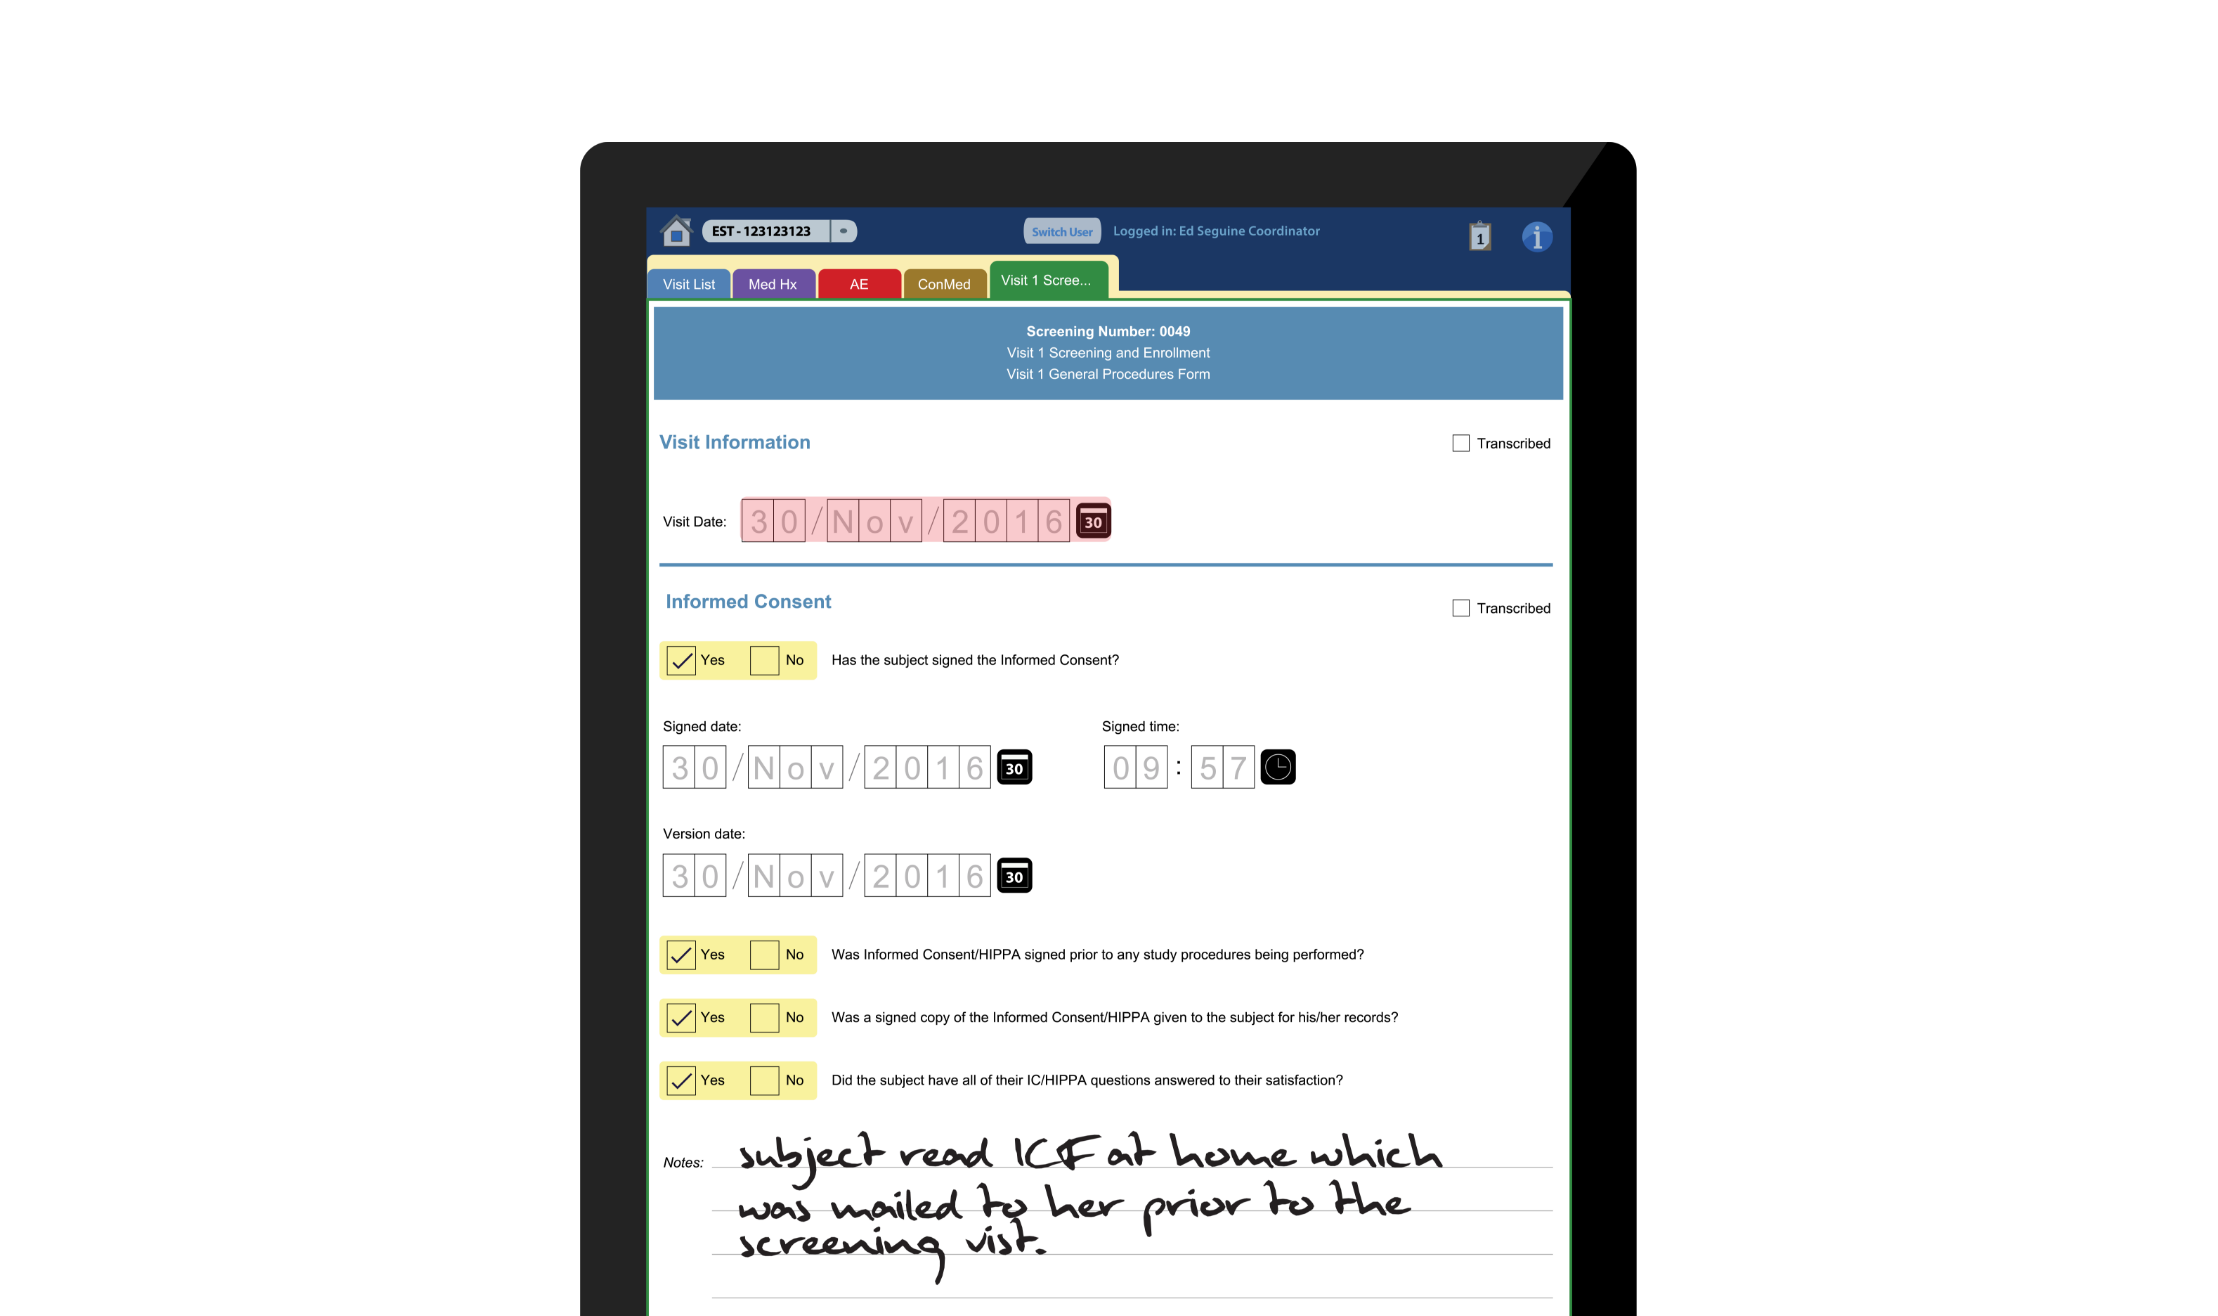 EST - 123123123
Switch User Logged in: Ed Seguine Coordinator
1
i
Visit List Med Hx AE ConMed Visit 1 Scree...
Screening Number: 0049
Visit 1 Screening and Enrollment
Visit 1 General Procedures Form
Visit Information
Transcribed
Visit Date: 30/Nov/2016 30
Informed Consent
Transcribed
Yes No Has the subject signed the Informed Consent?
Signed date: Signed time:
30/Nov/2016 30 09:57
Version date:
30/Nov/2016 30
Yes No Was Informed Consent/HIPPA signed prior to any study procedures being performed?
Yes No Was a signed copy of the Informed Consent/HIPPA given to the subject for his/her records?
Yes No Did the subject have all of their IC/HIPPA questions answered to their satisfaction?
Notes: subject read ICF at home which
was mailed to her prior to the
screening vist.